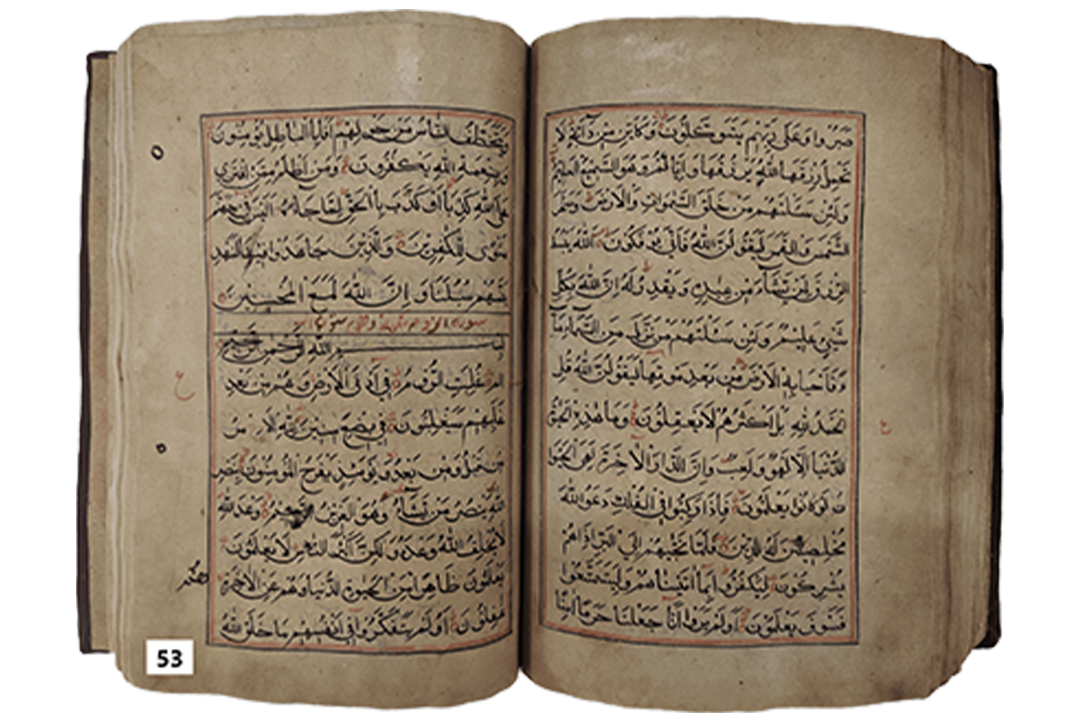 صبروا وعلى ربهم يتوكلون وكاين من دابة لا
تحمل رزقها الله يرزقها واياكم وهو السميع العليم
ولئن سالتهم من خلق السموات والارض وسخر
الشمس والقمر ليقولن الله فانى يؤفكون الله يبسط
الرزق لمن يشاء من عباده ويقدر له ان الله بكل
شيئ عليم ولئن سئلتهم من نزل من السماء ما
فاحيا به الارض من بعد موتها ليقولن الله قل
الحمد لله بل اكثرهم لا يعقلون وما هذه الحيوة
الدنيا الا لهو ولعب وان الدار الاخرة لهى الحيوا
ن لو كانوا يعلمون فاذا ركبوا فى الفلك دعوا الله
مخلصين له الدين فلما نجيهم الى البر اذا هم
يشركون ليكفروا بما اتيناهم وليتمتعوا
فسوف يعلمون اولم يروا انا جعلنا حرما امنا
ويتخطف الناس من حولهم افبالباطل يؤمنون
وبنعمة الله يكفرون ومن اظلم ممن افترى
على الله كذبا او كذب بالحق لما جاءه اليس فى جهنم
مثوى للكفرين والذين جاهدوا فينا لنهد
ينهم سبلنا وان الله لمع المحسنين
سورة الروم
بسم الله الرحمن الرحيم
الم غلبت الروم فى ادنى الارض وهم من بعد
غلبهم سيغلبون فى بضع سنين لله الامر
من قبل ومن بعد ويومئذ يفرح المؤمنون بنصر
الله ينصر من يشاء وهو العزيز الرحيم وعد الله
لا يخلف الله وعده ولكن اكثر الناس لا يعلمون
يعلمون ظاهرا من الحيوة الدنيا وهم عن الاخرة
غفلون اولم يتفكروا فى انفسهم ما خلق الله
ع
ع
53